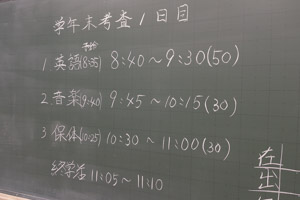 学年末考査1日目
1 英語(8:35) 8:40～9:30(50)
2 音楽(9:40) 9:45～10:15(30)
3 保体(10:25) 10:30～11:00(30)
終学活 11:05～11:10
在
出